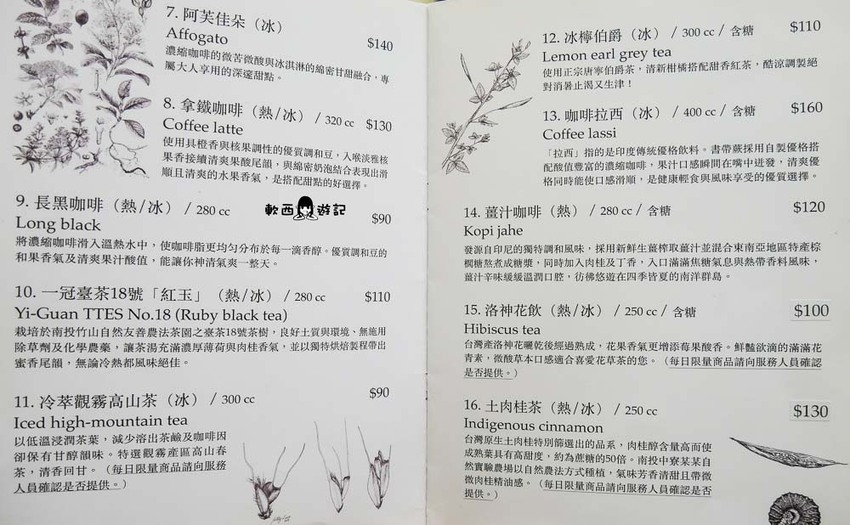 7. 阿芙佳朵（冰）
Affogato
$140
濃縮咖啡的微苦微酸與冰淇淋的綿密甘甜融合，專
屬大人享用的深邃甜點。
8. 拿鐵咖啡（熱/冰）/ 320 cc
$130
Coffee latte
使用具橙香與核果調性的優質調和豆，入喉淡雅核
果香接續清爽果酸尾韻，與綿密奶泡結合表現出滑
順且清爽的水果香氣，是搭配甜點的好選擇。
9. 長黑咖啡（熱/冰）/ 280 cc
軟西遊記
$90
Long black
將濃縮咖啡滑入溫熱水中，使咖啡脂更均勻分布於每一滴香醇。優質調和豆的
和果香氣及清爽果汁酸值，能讓你神清氣爽一整天。
10. 一冠臺茶18號「紅玉」（熱/冰）/ 280 cc
$110
Yi-Guan TTES No.18 (Ruby black tea)
栽培於南投竹山自然友善農法茶園之臺茶18號茶樹，良好土質與環境、無施用
除草劑及化學農藥，讓茶湯充滿濃厚薄荷與肉桂香氣，並以獨特烘焙製程帶出
蜜香尾韻，無論冷熱都風味絕佳。
11. 冷萃觀霧高山茶（冰）/ 300 cc
$90
Iced high-mountain tea
以低溫浸潤茶葉，減少溶出茶鹼及咖啡因
卻保有甘醇韻味。特選觀霧產區高山春
茶，清香回甘。（每日限量商品請向服務
人員確認是否提供。）
12. 冰檸伯爵（冰）/ 300 cc / 含糖
$110
Lemon earl grey tea
使用正宗唐寧伯爵茶，清新柑橘搭配甜香紅茶，酷涼調製絕
對消暑止渴又生津！
13. 咖啡拉西（冰）/ 400 cc / 含糖
$160
Coffee lassi
「拉西」指的是印度傳統優格飲料。書帶蕨採用自製優格搭
配酸值豐富的濃縮咖啡，果汁口感瞬間在嘴中迸發，清爽優
格同時能使口感滑順，是健康輕食與風味享受的優質選擇。
14. 薑汁咖啡（熱）/ 280 cc / 含糖
$120
Kopi jahe
發源自印尼的獨特調和風味，採用新鮮生薑榨取薑汁並混合東南亞地區特產棕
櫚糖熬煮成糖漿，同時加入肉桂及丁香，入口滿滿焦糖氣息與熱帶香料風味，
薑汁辛味緩緩溫潤口腔，彷彿悠遊在四季皆夏的南洋群島。
15. 洛神花飲（熱/冰）/ 250 cc / 含糖
$100
Hibiscus tea
台灣產洛神花曬乾後經過熟成，花果香氣更增添莓果酸香。鮮豔欲滴的滿滿花
青素，微酸草本口感適合喜愛花草茶的您。（每日限量商品請向服務人員確認
是否提供。）
16. 土肉桂茶（熱/冰）/ 250 cc
$130
Indigenous cinnamon
台灣原生土肉桂特別篩選出的品系，肉桂醇含量高而使
成熟葉具有高甜度，約為蔗糖的50倍。南投中寮某某自
然實驗農場以自然農法方式種植，氣味芳香清甜且帶微
微肉桂精油感。（每日限量商品請向服務人員確認是否
提供。）